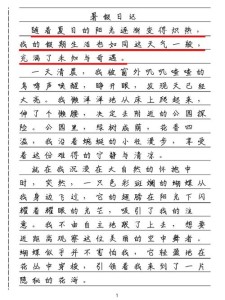 暑假日记
随着夏日的阳光逐渐变得炽热，
我的假期生活也如同这天气一般，
充满了未知与奇遇。
一天清晨，我被窗外叽叽喳喳的
鸟鸣声唤醒，睁开眼，发现天已经
大亮。我懒洋洋地从床上爬起来，
伸了个懒腰，决定去附近的公园探
险。公园里，绿树成荫，花香四
溢，我沿着蜿蜒的小径漫步，享受
着这份难得的宁静与清凉。
就在我沉浸在大自然的怀抱中
时，突然，一只色彩斑斓的蝴蝶从
我身边飞过，它的翅膀在阳光下闪
耀着耀眼的光芒，吸引了我的注
意。我不由自主地跟了上去，想要
近距离观察这位美丽的空中舞者。
蝴蝶似乎并不害怕我，它轻盈地在
花丛中穿梭，引领着我来到了一片
隐秘的花海。
1